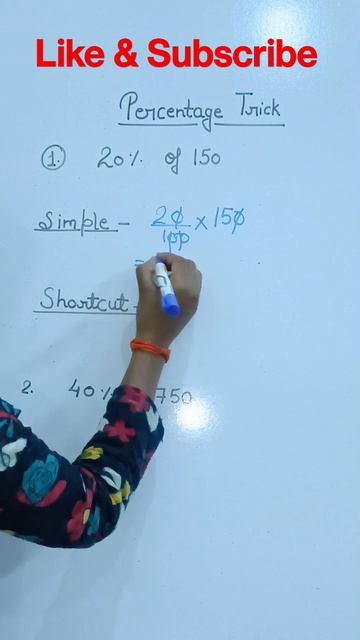 Like & Subscribe
Percentage Trick
1. 20% of 150
Simple - 20/100 × 150
=
Shortcut -
2. 40% 750